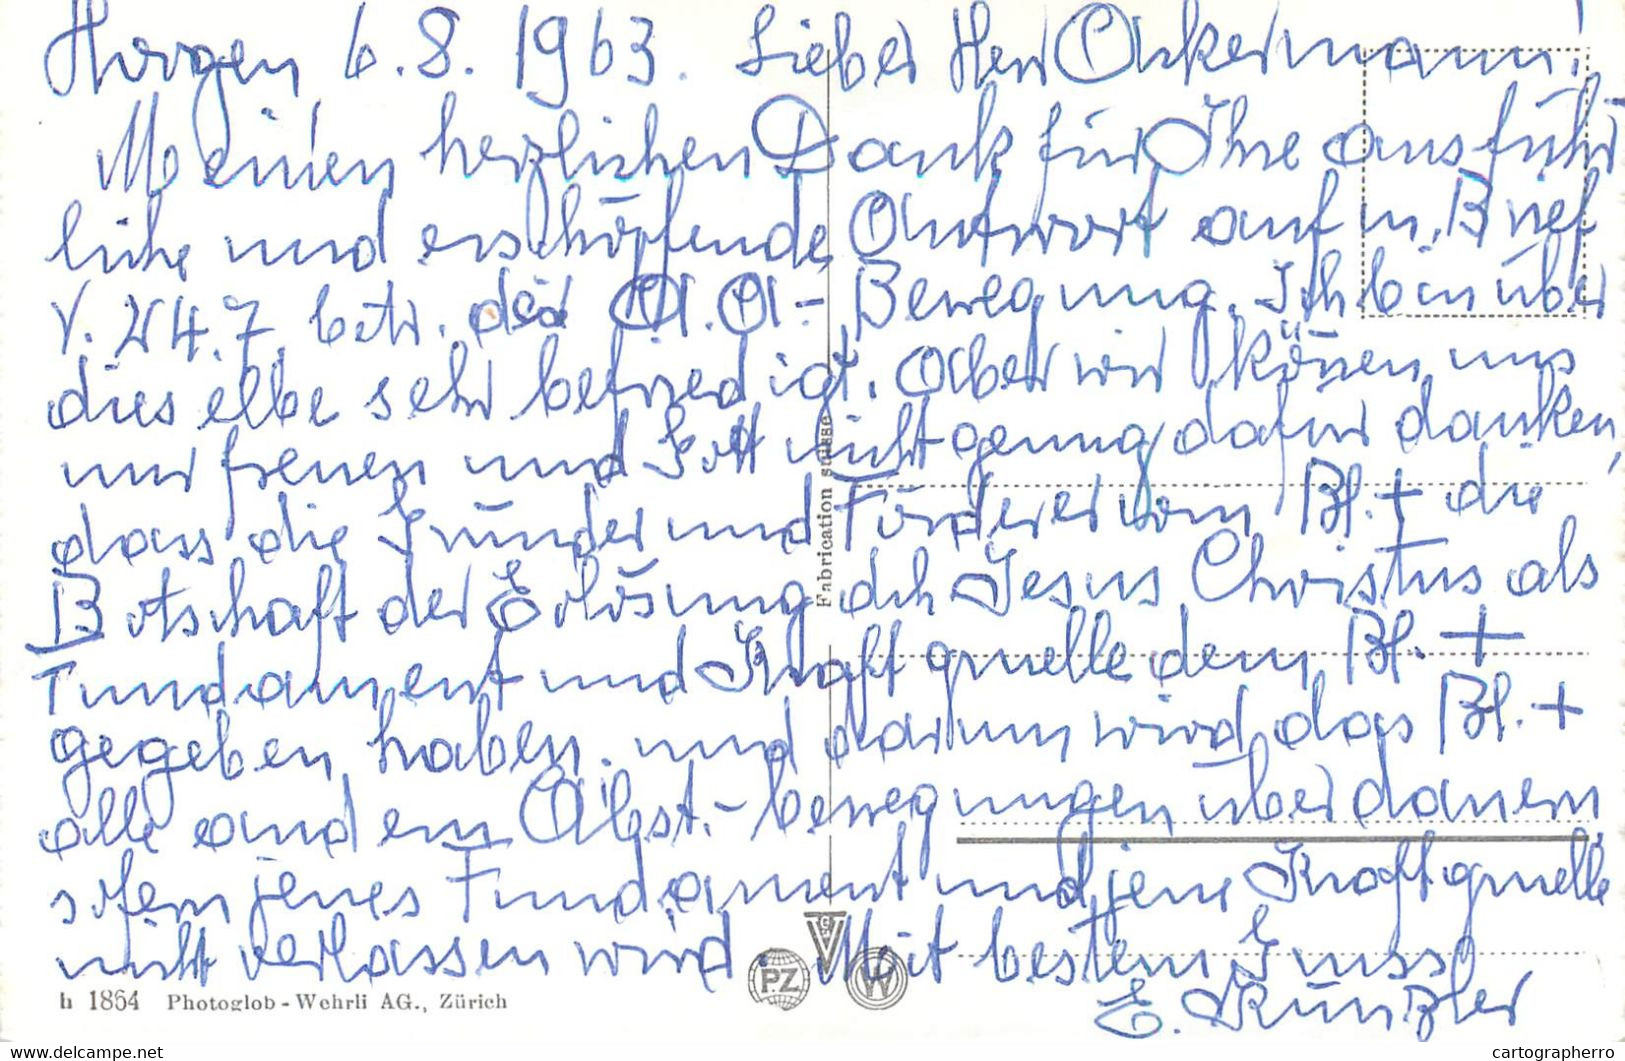 Horgen 6.8.1963. Lieber Herr Ackermann!
Meinen herzlichen Dank für Ihre ausführ
liche und erschöpfende Antwort auf m. Brief
v. 24.7. betr. die A.A.-Bewegung. Ich bin über
dieselbe sehr befriedigt. Aber wir können uns
nur freuen und Gott nicht genug dafür danken,
dass die Gründer und Förderer vom Bl.+ die
Botschaft der Erlösung dch Jesus Christus als
Fundament und Kraftquelle dem Bl.+
gegeben haben. und darum wird das Bl.+
alle andern Abst.-bewegungen überdauern,
sofern jenes Fundament und jene Kraftquelle
nicht verlassen wird. Mit bestem Gruss
E. Künzler
Fabrication suisse
h 1864 Photoglob-Wehrli AG., Zürich
P.Z
W
www.delcampe.net
cartographerro